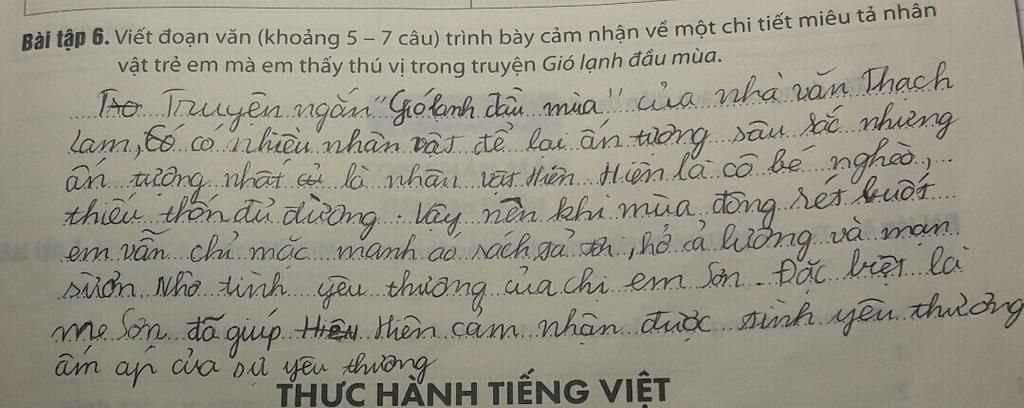 Bài tập 6. Viết đoạn văn (khoảng 5 – 7 câu) trình bày cảm nhận về một chi tiết miêu tả nhân
vật trẻ em mà em thấy thú vị trong truyện Gió lạnh đầu mùa.
Truyện ngắn "Gió lạnh đầu mùa" của nhà văn Thạch
Lam, có nhiều nhân vật để lại ấn tượng sâu sắc nhưng
ấn tượng nhất là nhân vật Hiên. Hiên là cô bé nghèo,
thiếu thốn đủ đường. Vậy nên khi mùa đông rét buốt
em vẫn chỉ mặc manh áo rách tả tơi, hở cả lưng và mạn
sườn. Nhờ tình yêu thương của chị em Sơn. Đặc biệt là
mẹ Sơn đã giúp Hiên cảm nhận được tình yêu thương
ấm áp của sự yêu thương
THỰC HÀNH TIẾNG VIỆT